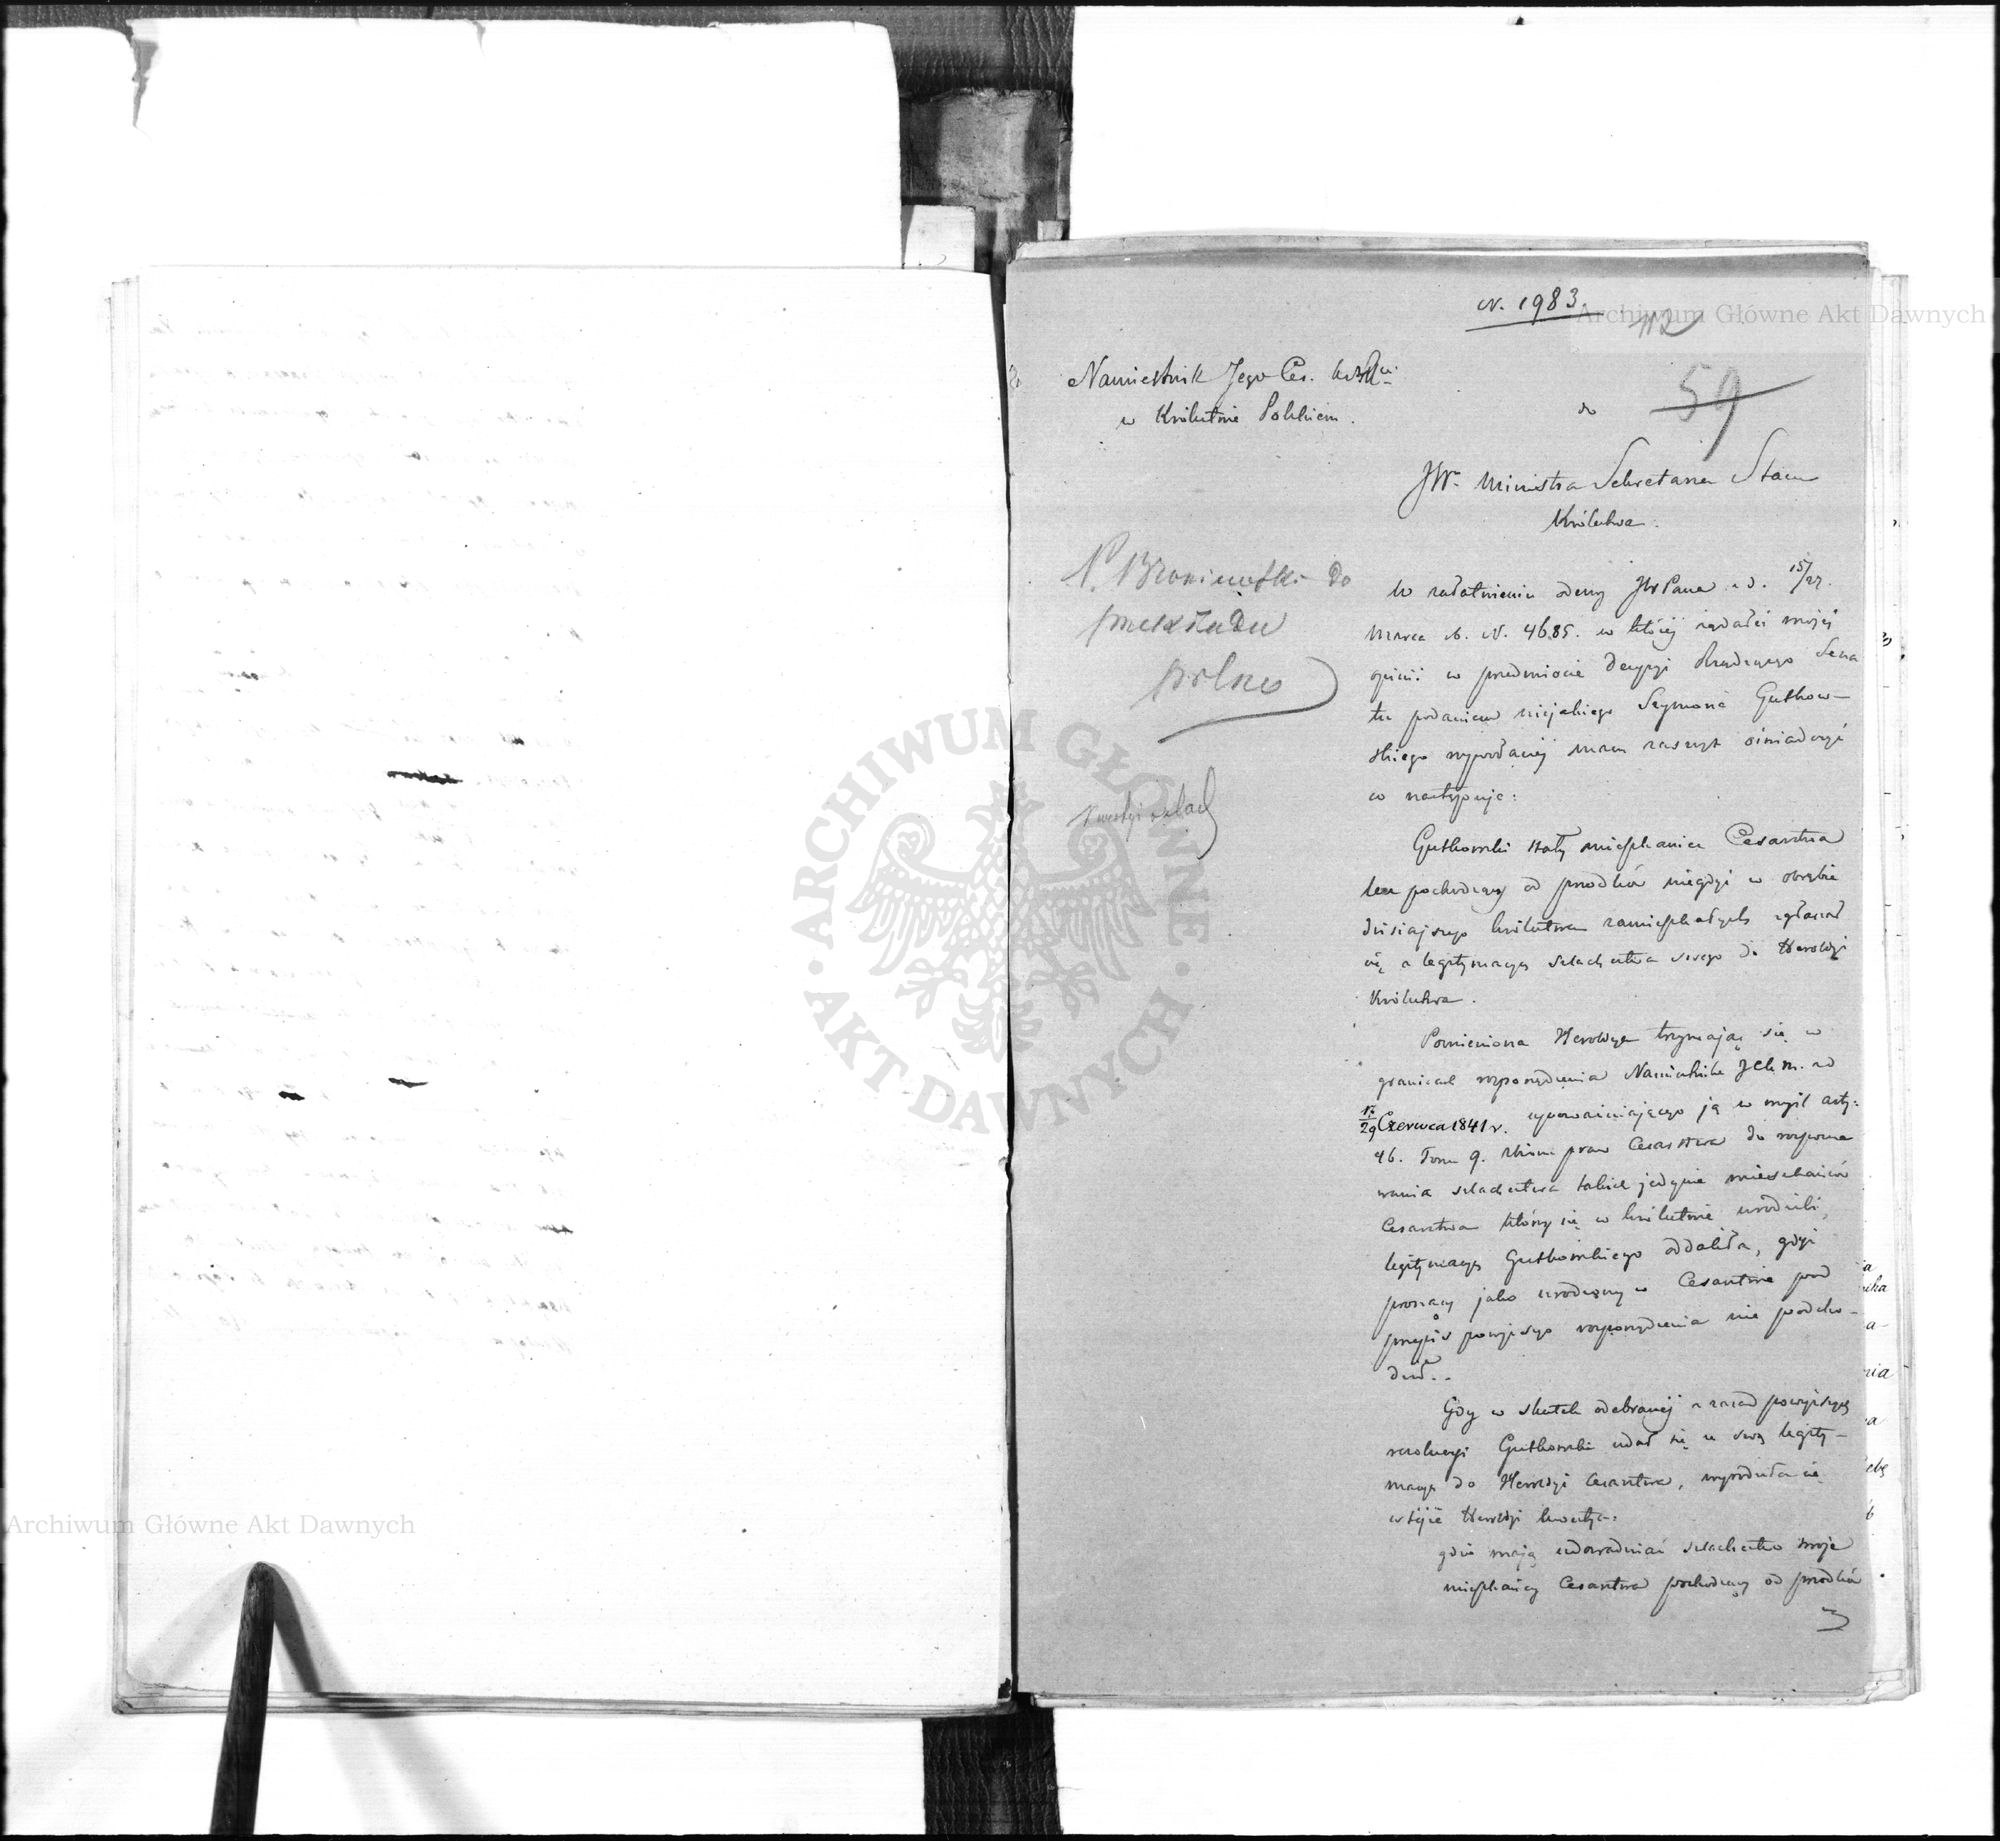 N. 1983.
112
59
Namiestnik Jego Ces. Król.
w Królestwie Polskiem.
do
JW. Ministra Sekretarza Stanu
Królestwa.
P. Broniewski do
przekładu
pilno
W załatwieniu odezwy JW Pana z d. 15/27.
Marca r. b. N. 4685. w której żądałeś mojej
opinii w przedmiocie decyzyi Rządzącego Sena
tu podaniem niejakiego Szymona Gutkow-
skiego wywołanej mam zaszczyt oświadczyć
co następuje:
Gutkowski stały mieszkaniec Cesarstwa
lecz pochodzący od przodków niegdyś w obrębie
dzisiejszego Królestwa zamieszkałych zgłaszał
się z legitymacyą szlachectwa swego do Heroldyi
Królestwa.
Pomieniona Heroldya trzymając się w
granicach rozporządzenia Namiestnika JCK M. z d
17/29 Czerwca 1841 r. upoważniającego ją w myśl arty:
46. Tomu 9. Zbioru praw Cesarstwa do rozpozna
wania szlachectwa takich jedynie mieszkańców
Cesarstwa którzy się w Królestwie urodzili,
legitymacyą Gutkowskiego oddaliła, gdyż
proszący jako urodzony w Cesarstwie pod
przepis powyższego rozporządzenia nie podcho-
dził.
Gdy w skutek odebranej z zasad powyższych
rezolucyi Gutkowski udał się ze swą legity-
macyą do Heroldyi Cesarstwa, wyrodziła się
w tejże Heroldyi kwestya:
gdzie mają udowadniać szlachectwo swoje
mieszkańcy Cesarstwa pochodzący od przodków
Archiwum Główne Akt Dawnych
ARCHIWUM GŁÓWNE
AKT DAWNYCH
Archiwum Główne Akt Dawnych